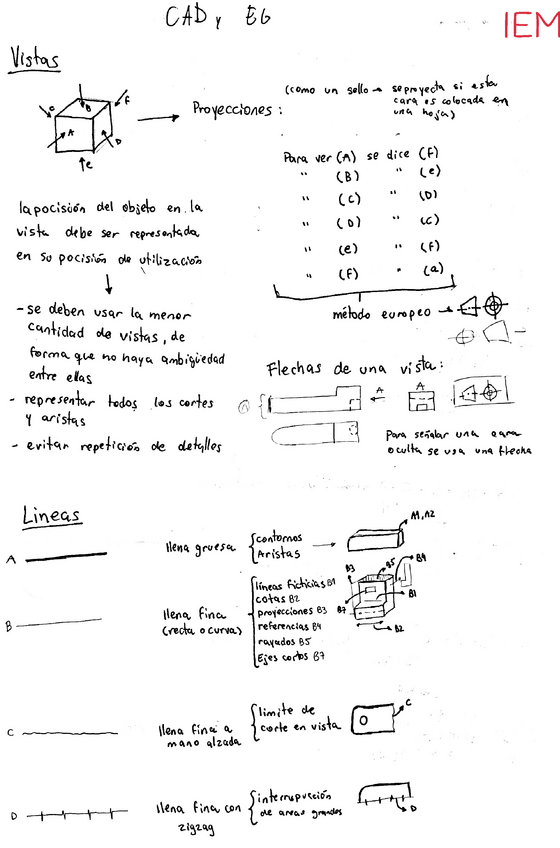 CAD y EG
IEM
Vistas
A
B
C
D
e
F
Proyecciones:
(como un sello → se proyecta si esta
cara es colocada en
una hoja)
Para ver (A) se dice (F)
" (B) " (e)
" (C) " (D)
" (D) " (C)
" (e) " (F)
" (F) " (a)
método europeo
la pocisión del objeto en la
vista debe ser representada
en su pocisión de utilización
- se deben usar la menor
cantidad de vistas, de
forma que no haya ambigüedad
entre ellas
- representar todos los cortes
y aristas
- evitar repetición de detalles
Flechas de una vista:
A
A
Para señalar una cara
oculta se usa una flecha
Lineas
A
llena gruesa
contornos
Aristas
A1, A2
B
llena fina
(recta o curva)
líneas ficticias B1
cotas B2
proyecciones B3
referencias B4
rayados B5
Ejes cortos B7
B3
B5
B4
B7
B1
B2
C
llena fina a
mano alzada
limite de
corte en vista
C
D
llena fina con
zigzag
interrupucción
de areas grandes
D